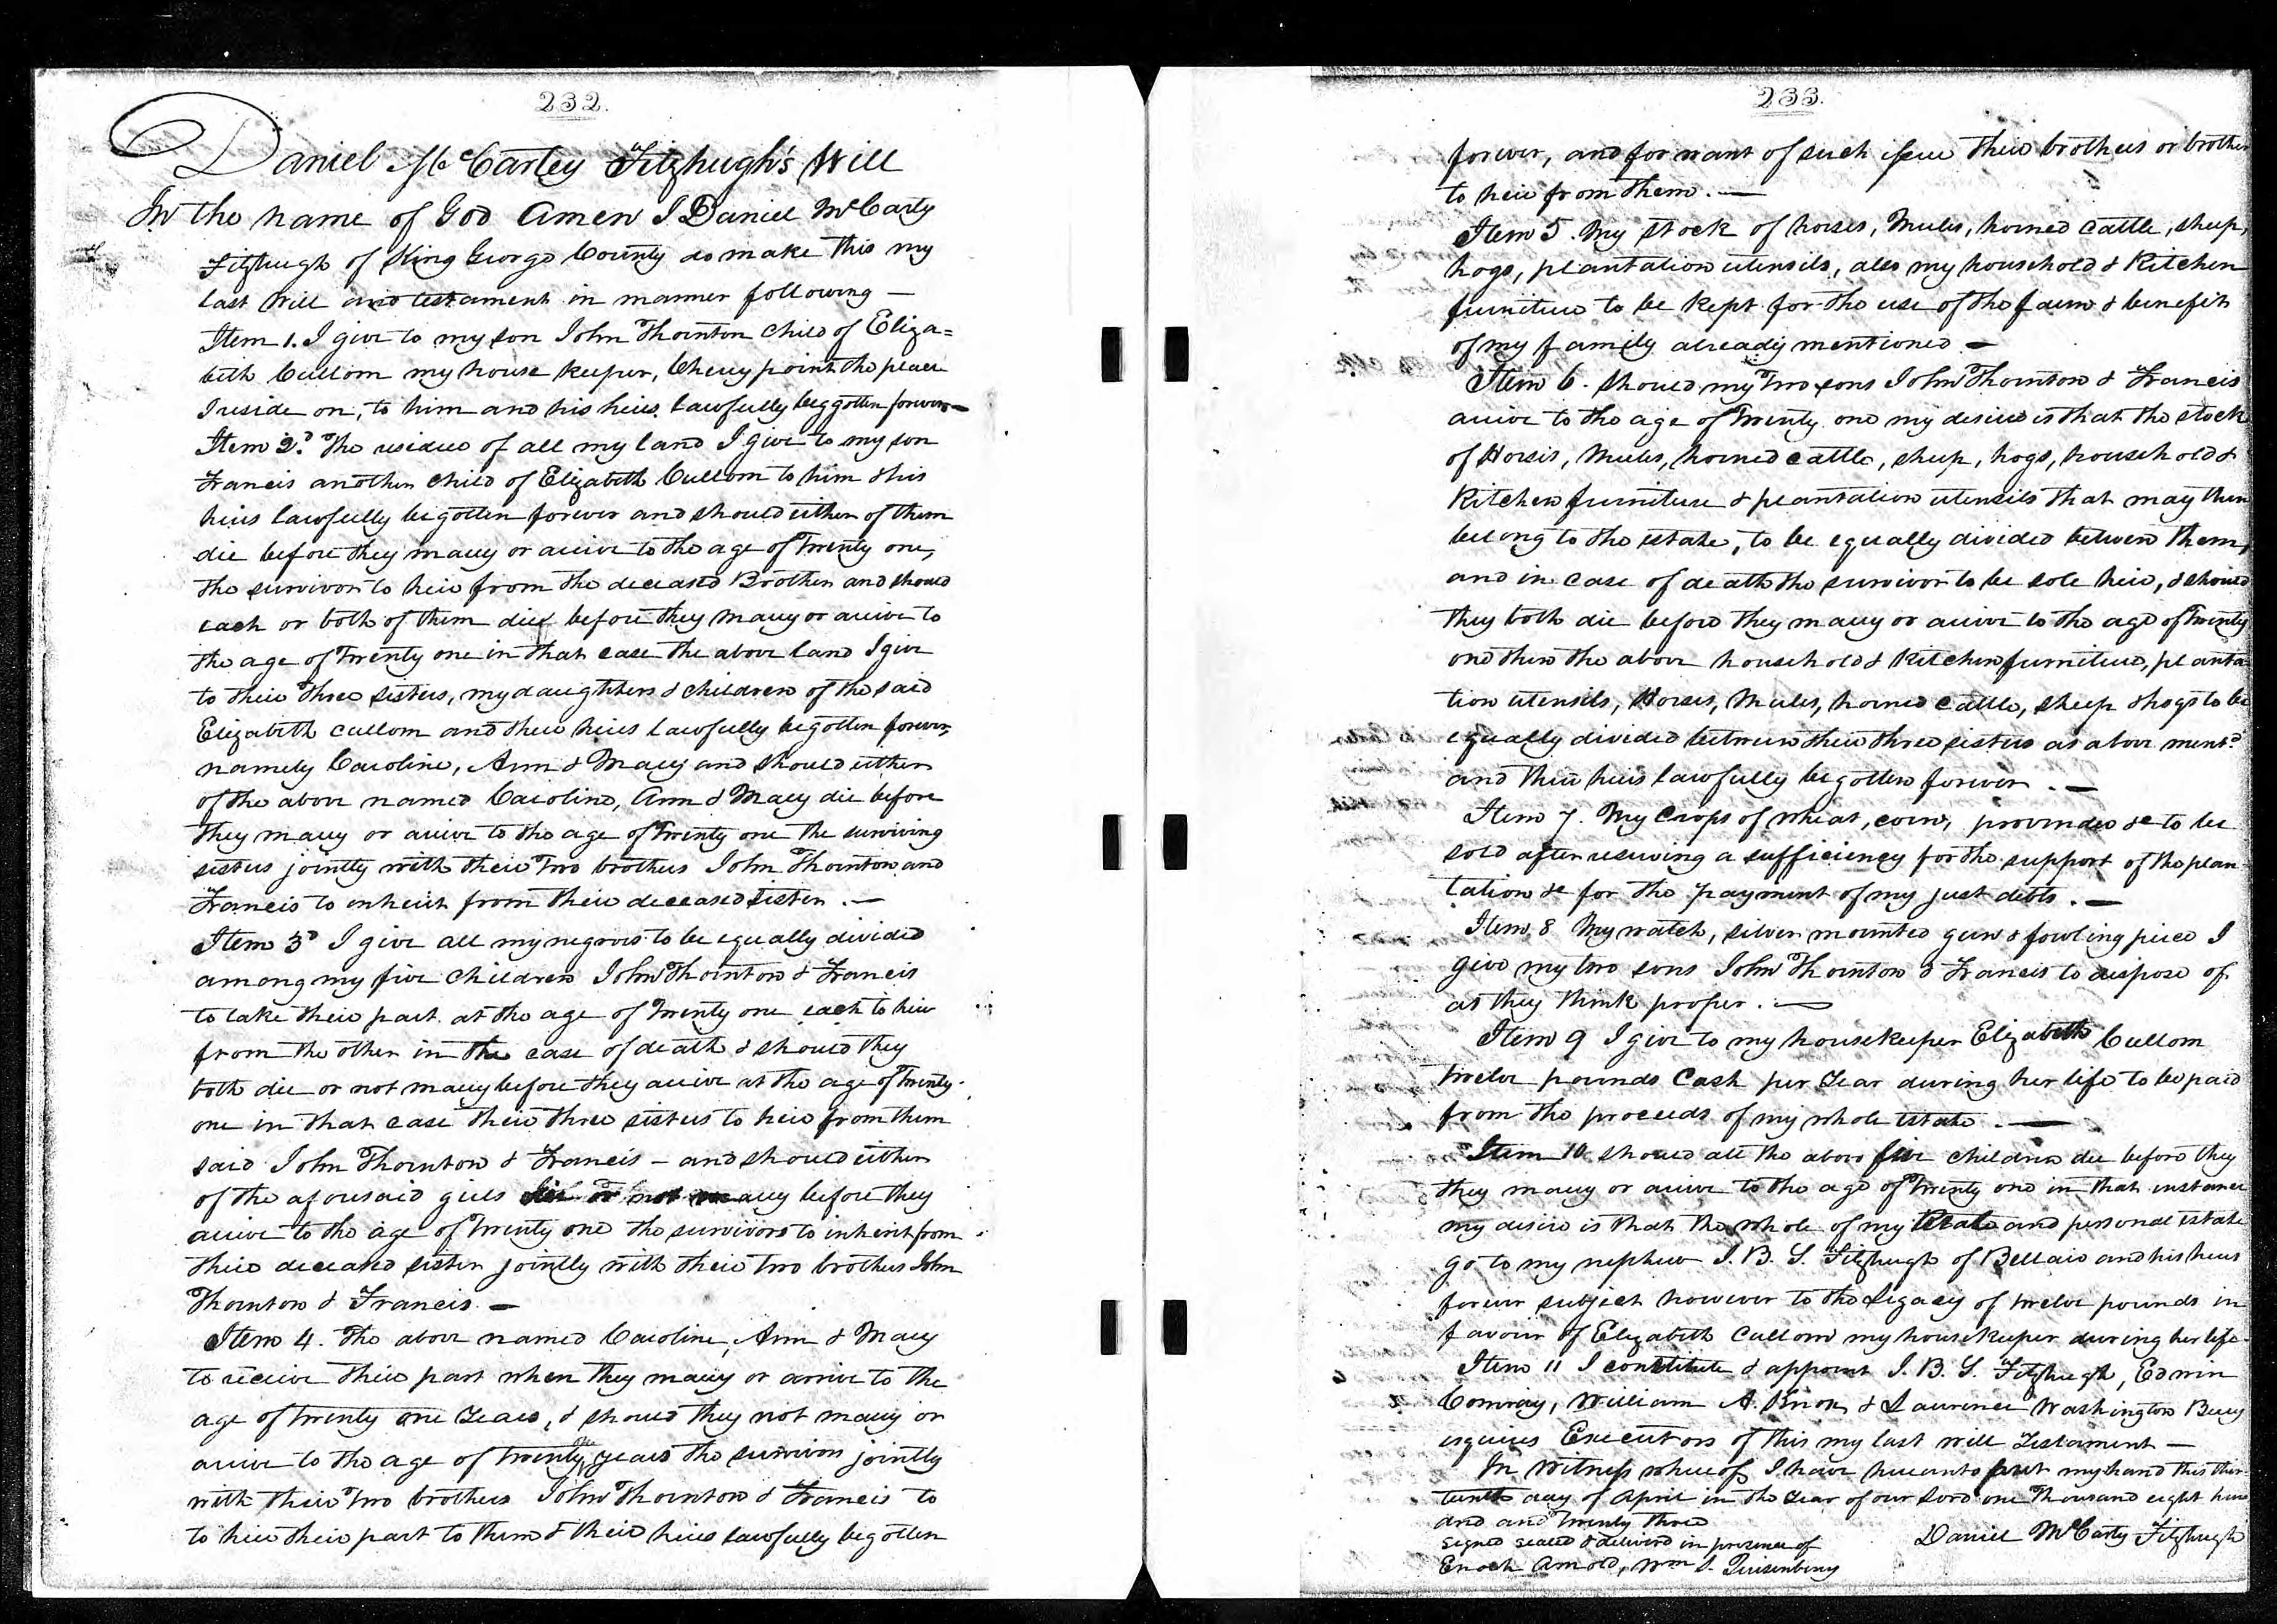 232.
Daniel McCartey Fitzhugh's Will
In the name of God Amen I Daniel McCarty
Fitzhugh of King George County do make this my
last Will and testament in manner following —
Item 1. I give to my son John Thornton child of Eliza=
beth Cullom my house keeper, Cherry point the place
I reside on, to him and his heirs lawfully beggotten forever —
Item 2d. The residue of all my land I give to my son
Francis another child of Elizabeth Cullom to him & his
heirs lawfully begotten forever and should either of them
die before they marry or arrive to the age of Twenty one,
the survivor to heir from the deceased Brother and should
each or both of them die before they marry or arrive to
the age of Twenty one in that case the above land I give
to their three sisters, my daughters & children of the said
Elizabeth Cullom and their heirs lawfully begotten forever,
namely Caroline, Ann & Mary and should either
of the above named Caroline, Ann & Mary die before
they marry or arrive to the age of Twenty one the surviving
sisters jointly with their Two brothers John Thornton and
Francis to inherit from their deceased sister . —
Item 3d I give all my negroes to be equally divided
among my five children John Thornton & Francis
to take their part at the age of Twenty one each to heir
from the other in the case of death & should they
both die or not marry before they arrive at the age of Twenty
one in that case their three sisters to heir from them
said John Thornton & Francis — and should either
of the aforesaid girls die or not marry before they
arrive to the age of Twenty one the survivors to inherit from
their deceased sister jointly with their two brothers John
Thornton & Francis. —
Item 4. The above named Caroline, Ann & Mary
to receive their part when they marry or arrive to the
age of twenty one Years, & should they not marry or
arrive to the age of twenty one years the survivors jointly
with their Two brothers John Thornton & Francis to
to heir their part to them & their heirs lawfully begotten
233.
forever, and for want of such issue their brothers or brother
to heir from them. —
Item 5. My stock of horses, Mules, horned cattle, sheep,
hogs, plantation utensils, also my household & Kitchen
furniture to be kept for the use of the farm & benefit
of my family already mentioned —
Item 6. Should my Two sons John Thornton & Francis
arrive to the age of Twenty one my desire is that the stock
of Horses, Mules, horned cattle, sheep, hogs, household &
Kitchen furniture & plantation utensils that may then
belong to the estate, to be equally divided between them,
and in case of death the survivor to be sole heir, & should
they both die before they marry or arrive to the age of Twenty
one then the above household & Kitchen furniture, planta
tion utensils, Horses, Mules, horned cattle, sheep & hogs to be
equally divided between their three sisters as above mentd
and their heirs lawfully begotten forever . —
Item 7. My Crops of wheat, corn, provender &c to be
sold after reserving a sufficiency for the support of the plan
tation &c for the payment of my just debts . —
Item 8 My watch, silver mounted gun & fowling piece I
give my two sons John Thornton & Francis to dispose of
as they think proper . —
Item 9 I give to my housekeeper Elizabeth Cullom
twelve pounds Cash per Year during her life to be paid
from the proceeds of my whole estate . —
Item 10 should all the above five children die before they
they marry or arrive to the age of Twenty one in that instance
my desire is that the whole of my Real and personal estate
go to my nephew J. B. S. Fitzhugh of Bellair and his heirs
forever subject however to the Legacy of twelve pounds in
favour of Elizabeth Cullom my housekeeper during her life
Item 11 I constitute & appoint J. B. S. Fitzhugh, Edwin
Conway, William A. Knox & Laurence Washington Berry
esquires Executors of this my last will Testament —
In Witness whereof I have hereunto set my hand this thir
teenth day of April in the Year of our Lord one Thousand eight hun
dred and Twenty three
signed sealed & deliverd in presence of
Daniel McCarty Fitzhugh
Enoch Arnold, Wm S. Quisenberry